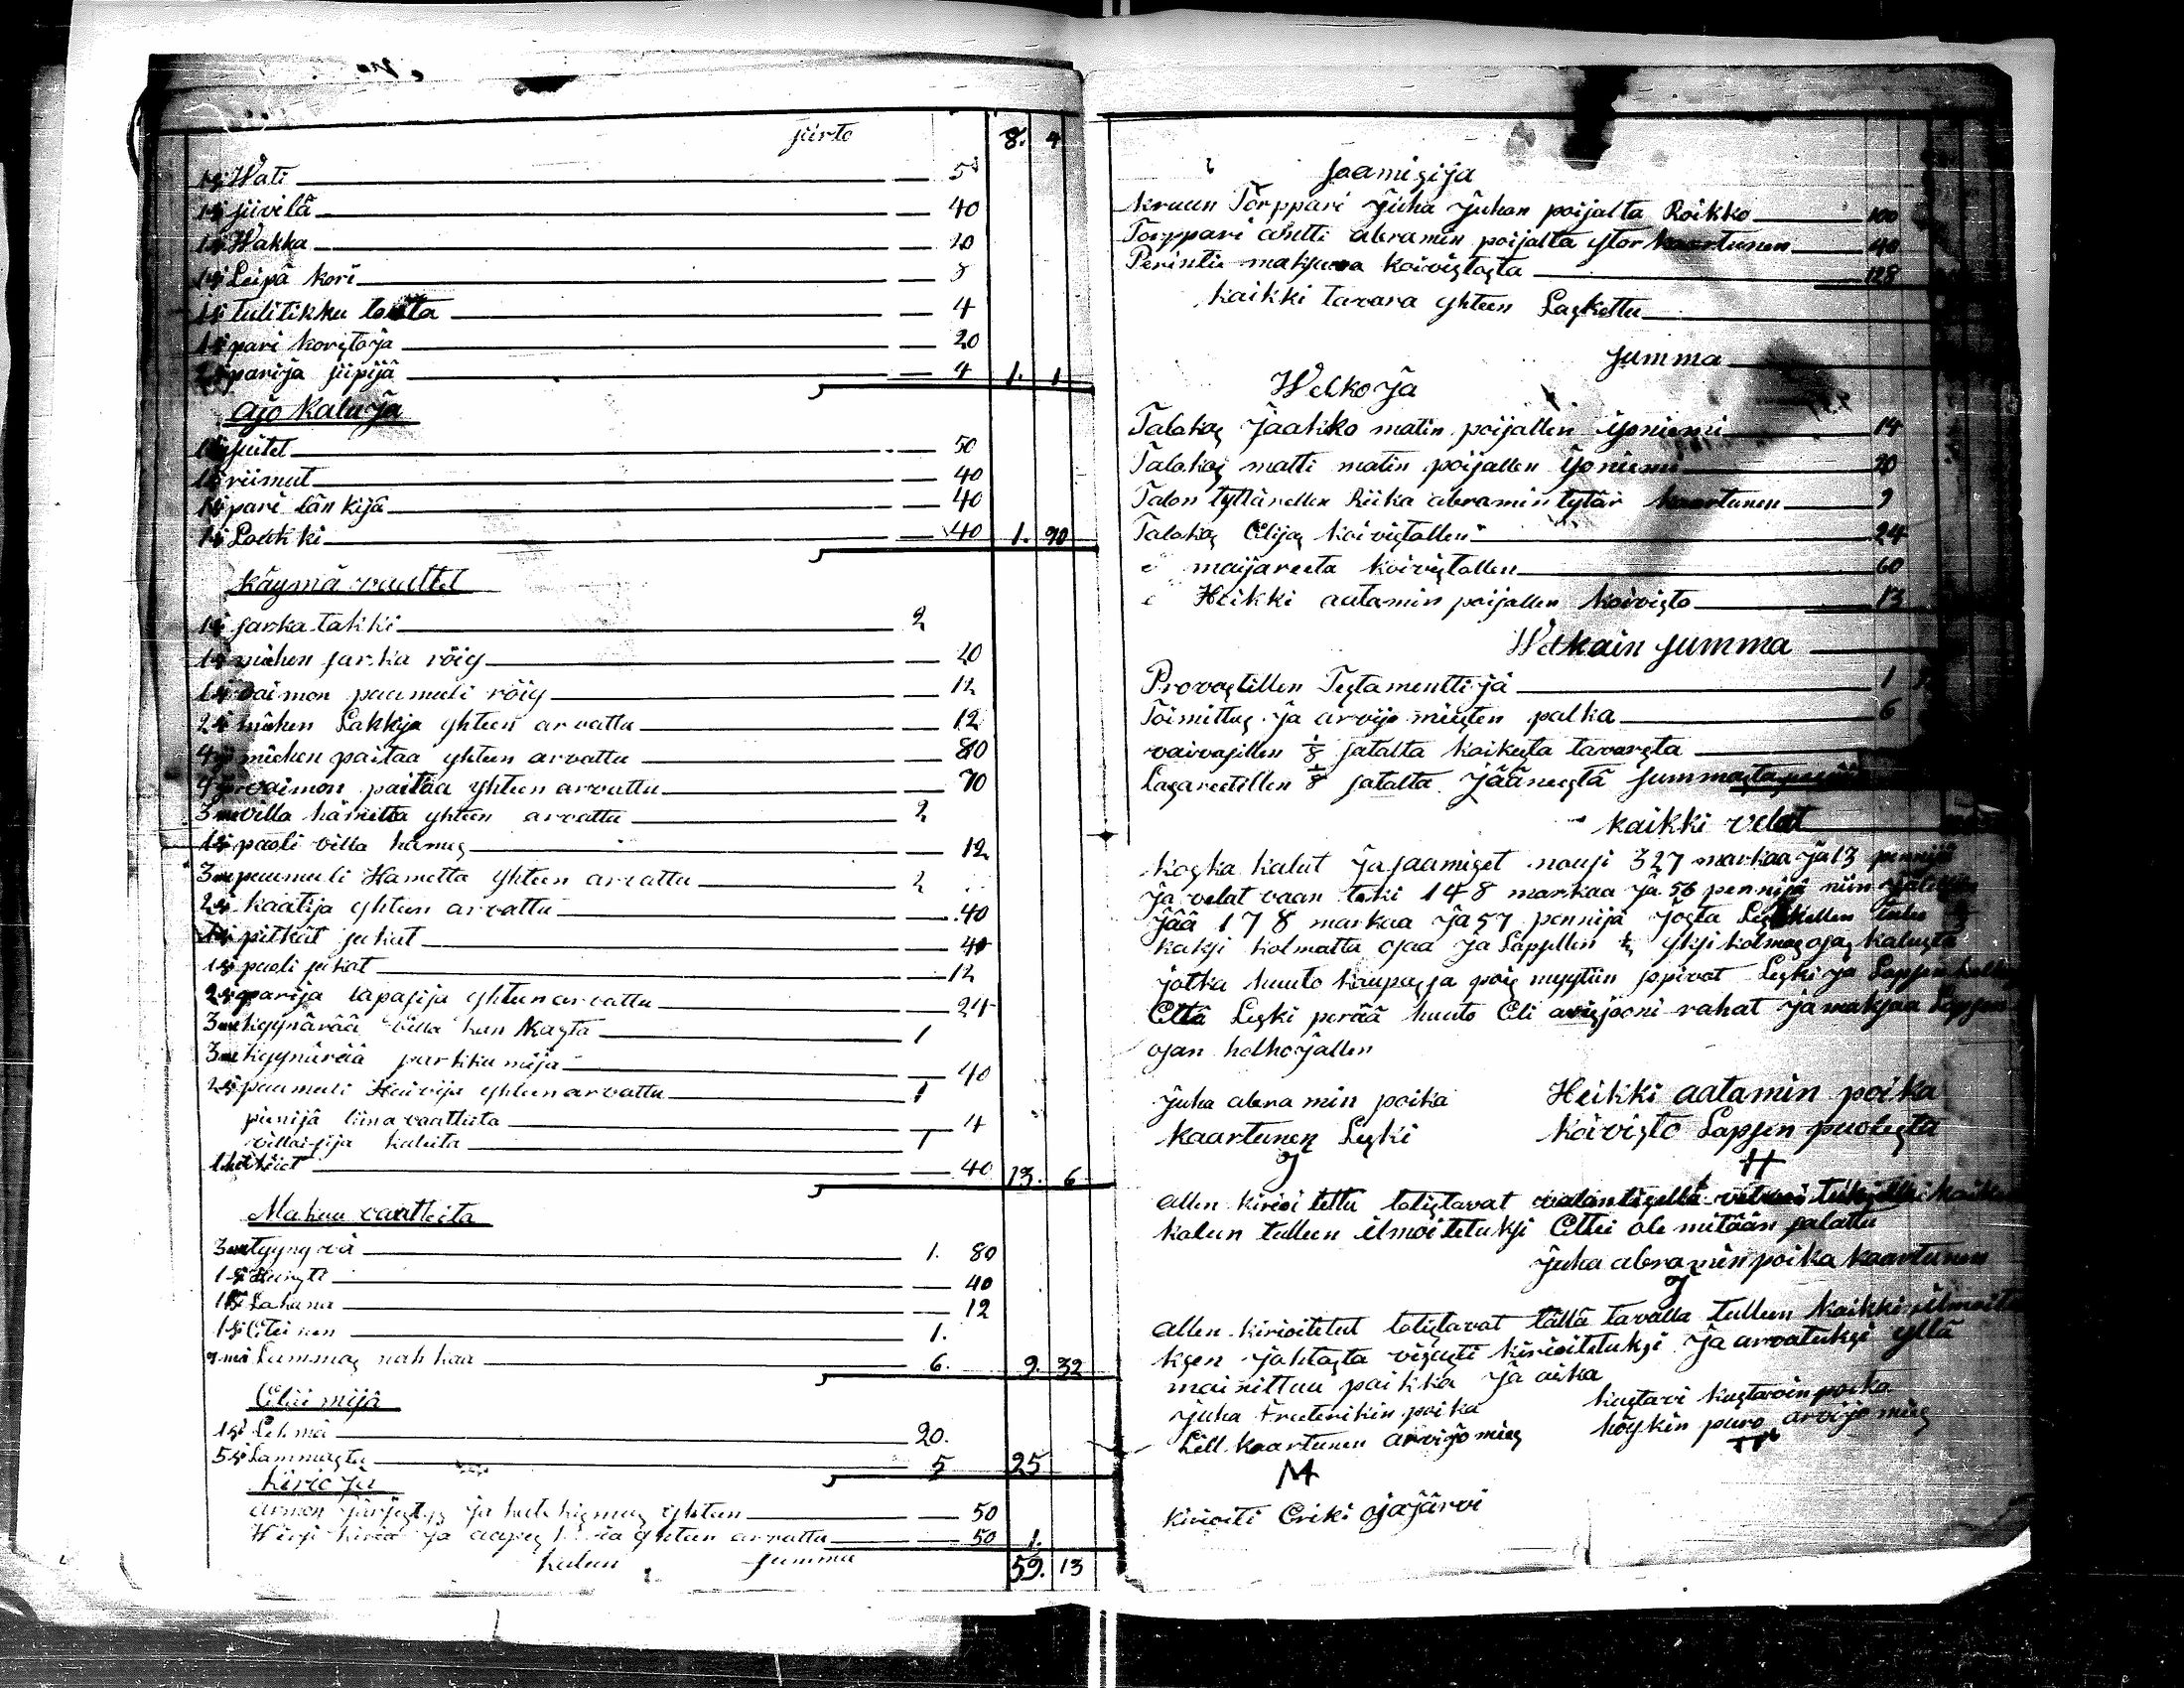 siirto 8. 4
1si Wati — 5
1si siivilä — 40
1si Wakka — 20
1si Leipä kori — 8
1si tulitikku — 4
1si pari koristoja — 20
parija siipijä — 4 1. 1
Ajo Kaluja
suitet — 50
1si riimut — 40
1si pari länkijä — 40
1si Loukki — 40 1. 70
Käymä vaattet
1si sarka takki 2
1si miehen sarka röis — 20
1si vaimon paumuli röis — 12
2si miehen Lakkija yhteen arvattu — 12
4si miehen paitaa yhteen arvattu — 80
vaimon paitaa yhteen arvattu — 70
3me villa hametta yhteen arvattu 2
1si puoli villa hames — 12
3me puumuli Hametta yhteen arvattu 2
2si kaatija yhteen arvattu — 40
1si pitkät sukat — 40
1si puoli sukat — 12
2si parija tapasija yhteen arvattu — 24
3me kyynärää villa kankasta 1
3me kyynärää parkkumija — 40
2si puumuli Huivija yhteen arvattu 1
pienijä liinavaatteita — 4
villaisija kaluita
— 40 13. 6
Makuu vaatteita
3me tyynyvä 1. 80
1si — 40
1si Lakana — 12
1si 1.
Lammas nahkaa 6. 9. 32
Eläimijä
1si Lehmä 20.
5si Lammasta 5 25
Kirioja
armon järjestys ja yhteen — 50
Wirsi kiria ja yhteen arvattu — 50 1.
kalun summa 59. 13
saamisija
kruun Torppari Juha Juhan poijalta Roikko 100
Torppari antti abramin poijalta kaartunen 40
Perintö maksuva koivistosta 128
kaikki tavara yhteen Laskettu
summa
Welkoja
Talokas Jaakko matin poijallen yoniemi 14
Talokas matti matin poijallen yoniemi 20
Talon tyttärellen Riika abramin tytär kaartunen 9
Talokas Elijas koivistollen 24
maijareeta koivistollen 60
Heikki aatamin poijallen koivisto 13
Welkain summa
Provastillen Testamenttijä 1
Toimittus ja arvijo miesten palka 6
vaivasillen 1/8 satalta kaikesta tavarasta
Lasareetillen 1/8 satalta jääneestä summasta
kaikki velat
koska kalut ja saamiset nousi 327 markkaa ja 13 pennijä
ja velat vaan teki 148 markaa ja 56 pennijä niin
jää 178 markaa ja 57 pennijä josta Leskellen tulee
kaksi kolmatta osaa ja Lapsillen yksi kolmas osa kalusta
jotka huuto kaupassa pois myytiin sopivat Leski ja Lapsen
Että Leski perää huuto Eli auksjooni rahat ja maksaa Lapsen
osan holhojallen
Juha abramin poika
Kaartunen Leski
J
Heikki aatamin poika
koivisto Lapsen puolesta
H
allen kirioitettu totistavat
kalun tulleen ilmoitetuksi Ettei ole mitään salattu
Juha abramin poika kaartunen
J
allen kirioitetut totistavat tällä tavalla tulleen kaikki
ksen johtasta visusti kirioitetuksi ja arvatuksi yllä
mainittuu paikka ja aika
Juha Freterikin poika
Lill kaartunen arvijo mies
M
kustavi kustavin poika
höykin puro arvijo mies
kirioiti Eriki ojajärvi